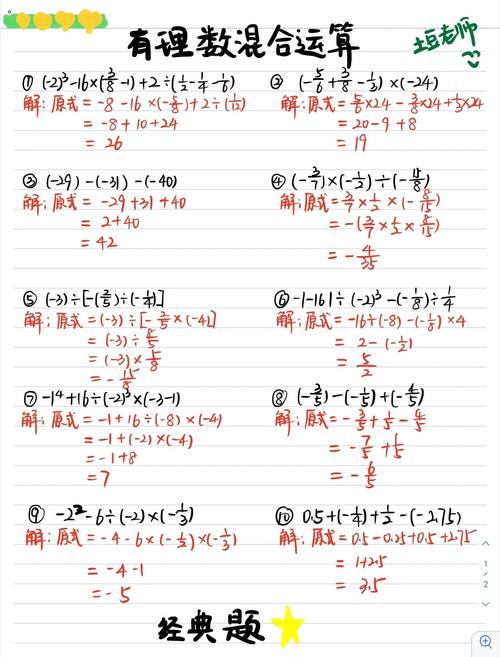 有理数混合运算
土豆老师
① (-2)³-16×(3/8-1)+2÷(1/2-1/4-1/6)
解:原式=-8-16×(-5/8)+2÷(1/12)
=-8+10+24
=26
② (-5/6+3/8-1/3)×(-24)
解:原式=5/6×24-3/8×24+1/3×24
=20-9+8
=19
③ (-29)-(-31)-(-40)
解:原式=-29+31+40
=2+40
=42
④ (-3/7)×(-1/2)÷(-15/8)
解:原式=3/7×1/2×(-8/15)
=-(3/7×1/2×8/15)
=-4/35
⑤ (-3)÷[-(2/5)÷(-1/4)]
解:原式=(-3)÷[-2/5×(-4)]
=(-3)÷8/5
=(-3)×5/8
=-15/8
⑥ -|-16|÷(-2)³-(-1/8)÷1/4
解:原式=-16÷(-8)-(-1/8)×4
=2-(-1/2)
=5/2
⑦ -1⁴+16÷(-2)³×(-3-1)
解:原式=-1+16÷(-8)×(-4)
=-1+(-2)×(-4)
=-1+8
=7
⑧ (-3/5)-(-1/5)+(-4/5)
解:原式=-3/5+1/5-4/5
=-7/5+1/5
=-6/5
⑨ -2²-6÷(-2)×(-1/3)
解:原式=-4-6×(-1/2)×(-1/3)
=-4-1
=-5
⑩ 0.5+(-1/4)+1/2-(-2.75)
解:原式=0.5-0.25+0.5+2.75
=1+2.5
=3.5
经典题
1
/
2